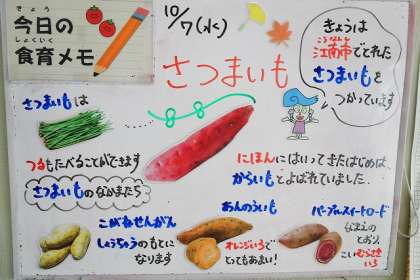 きょう
今日の
しょくいく
食育メモ
10/7(水)
さつまいも
きょうは
こうなんし
江南市でとれた
さつまいもを
つかっています
さつまいもは
つるもたべることができます
さつまいものなかまたち
にほんにはいってきたはじめは、
からいもとよばれていました。
こがねせんがん
しょうちゅうのもとに
なります
あんのういも
オレンジいろで
とってもあまい!
パープルスイートロード
なまえの
とおり
こいむらさき
いろ